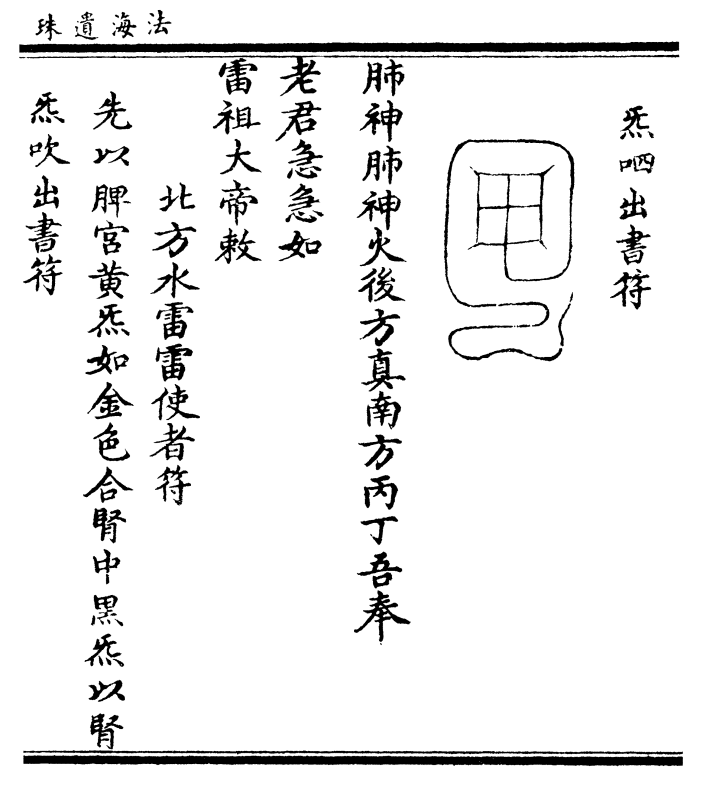 法海遺珠
炁呬出書符
肺神肺神火後方真南方丙丁吾奉
老君急急如
雷祖大帝敕
北方水雷雷使者符
先以脾宮黃炁如金色合腎中黑炁以腎
炁吹出書符